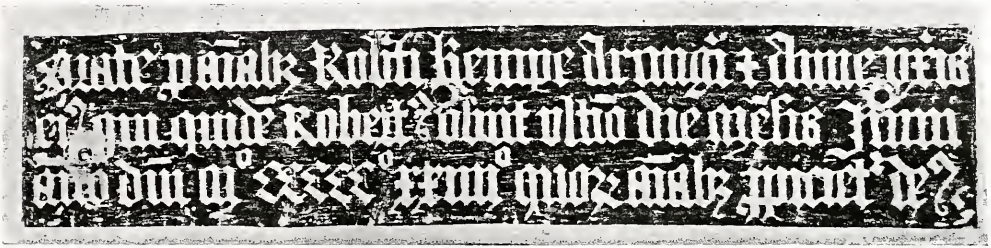 Orate p aīabȝ Rob̄ti kempe Armigī & Anne vxīs
ei⁹ qui quidē Robert⁹ obiit vltīo die mēsis Junii
ān̄o dn̄i mº CCCCCº xxiiiiº quoȝ aīabȝ ppiciet⁹ de⁹